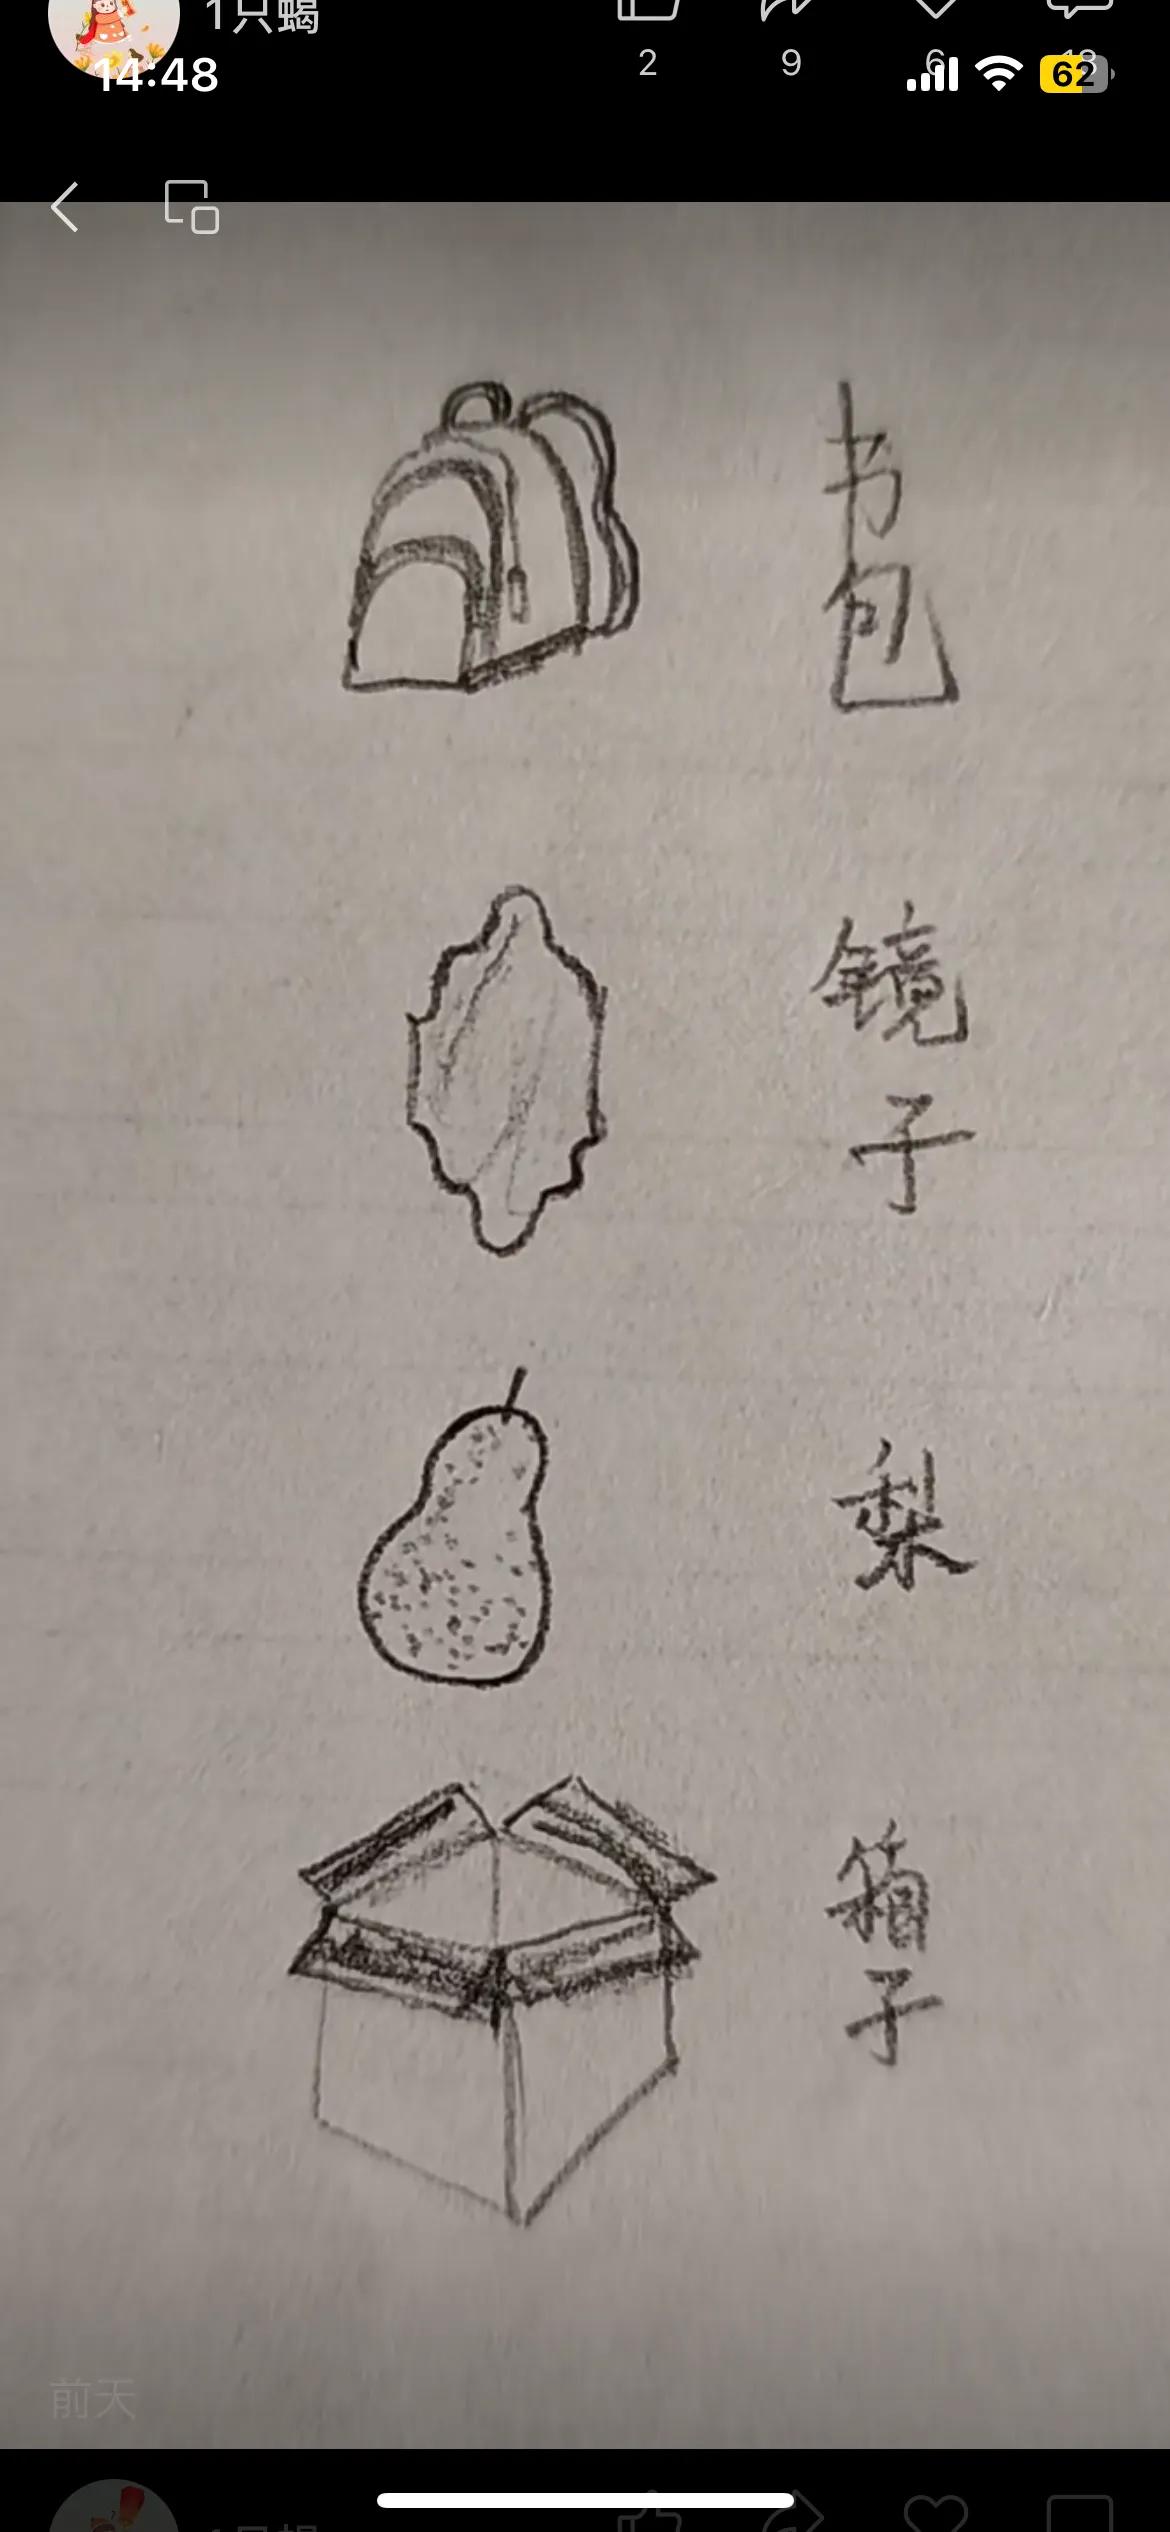 1只蝎
2 9 6 18
14:48 62
书包
镜子
梨
箱子
前天